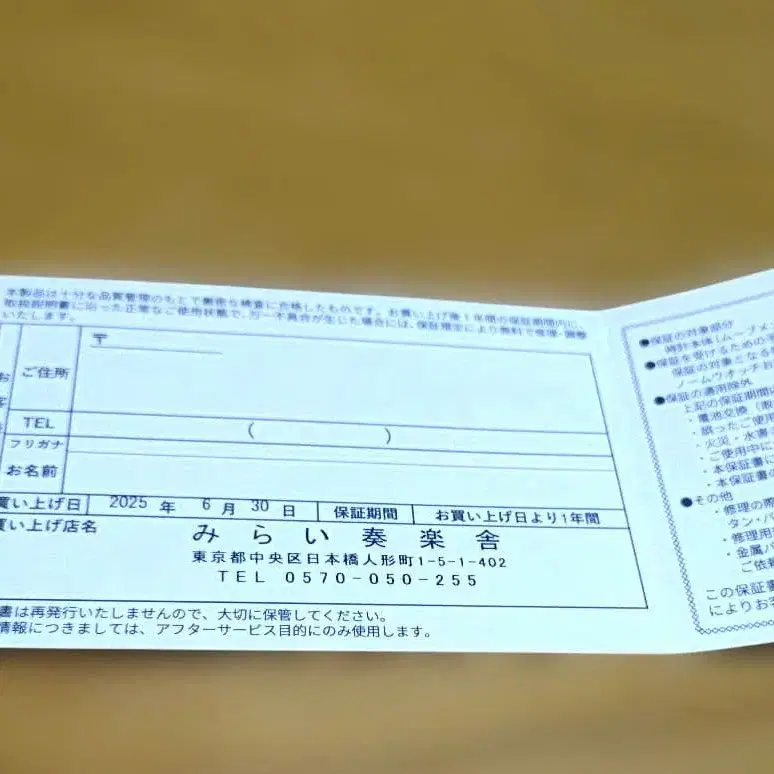 本製品は十分な品質管理のもとで厳密な検査に合格したものです。お買い上げ後1年間の保証期間内に、
取扱説明書に沿った正常なご使用状態で、万一不具合が生じた場合には、保証規定により無料で修理・調整
いたします。
〒
ご住所
TEL ( )
フリガナ
お名前
買い上げ日 2025 年 6 月 30 日 保証期間 お買い上げ日より1年間
買い上げ店名
みらい奏楽舎
東京都中央区日本橋人形町1-5-1-402
TEL 0570-050-255
書は再発行いたしませんので、大切に保管してください。
情報につきましては、アフターサービス目的にのみ使用します。
●保証の対象部分
時計本体(ムーブメ
●保証を受けるための
保証の対象となる
ノームウオッチお
●保証の適用除外
上記の保証期間
・電池交換(
・誤ったご使用
・火災・水害
・ご使用中に
・本保証書に
・本保証書
●その他
・修理の際
タン・バ
・修理用
・金属バ
ご依頼
この保証書
によりお